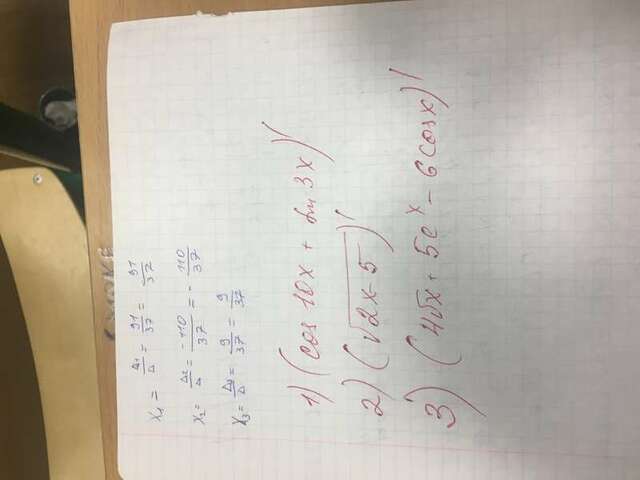 x₁ = Δ₁/Δ = 91/37 = 91/37
x₂ = Δ₂/Δ = -110/37 = - 110/37
x₃ = Δ₃/Δ = 9/37 = 9/37
1) (cos 10x + sin 3x)'
2) (√(2x-5))'
3) (4√x + 5e^x - 6cosx)'